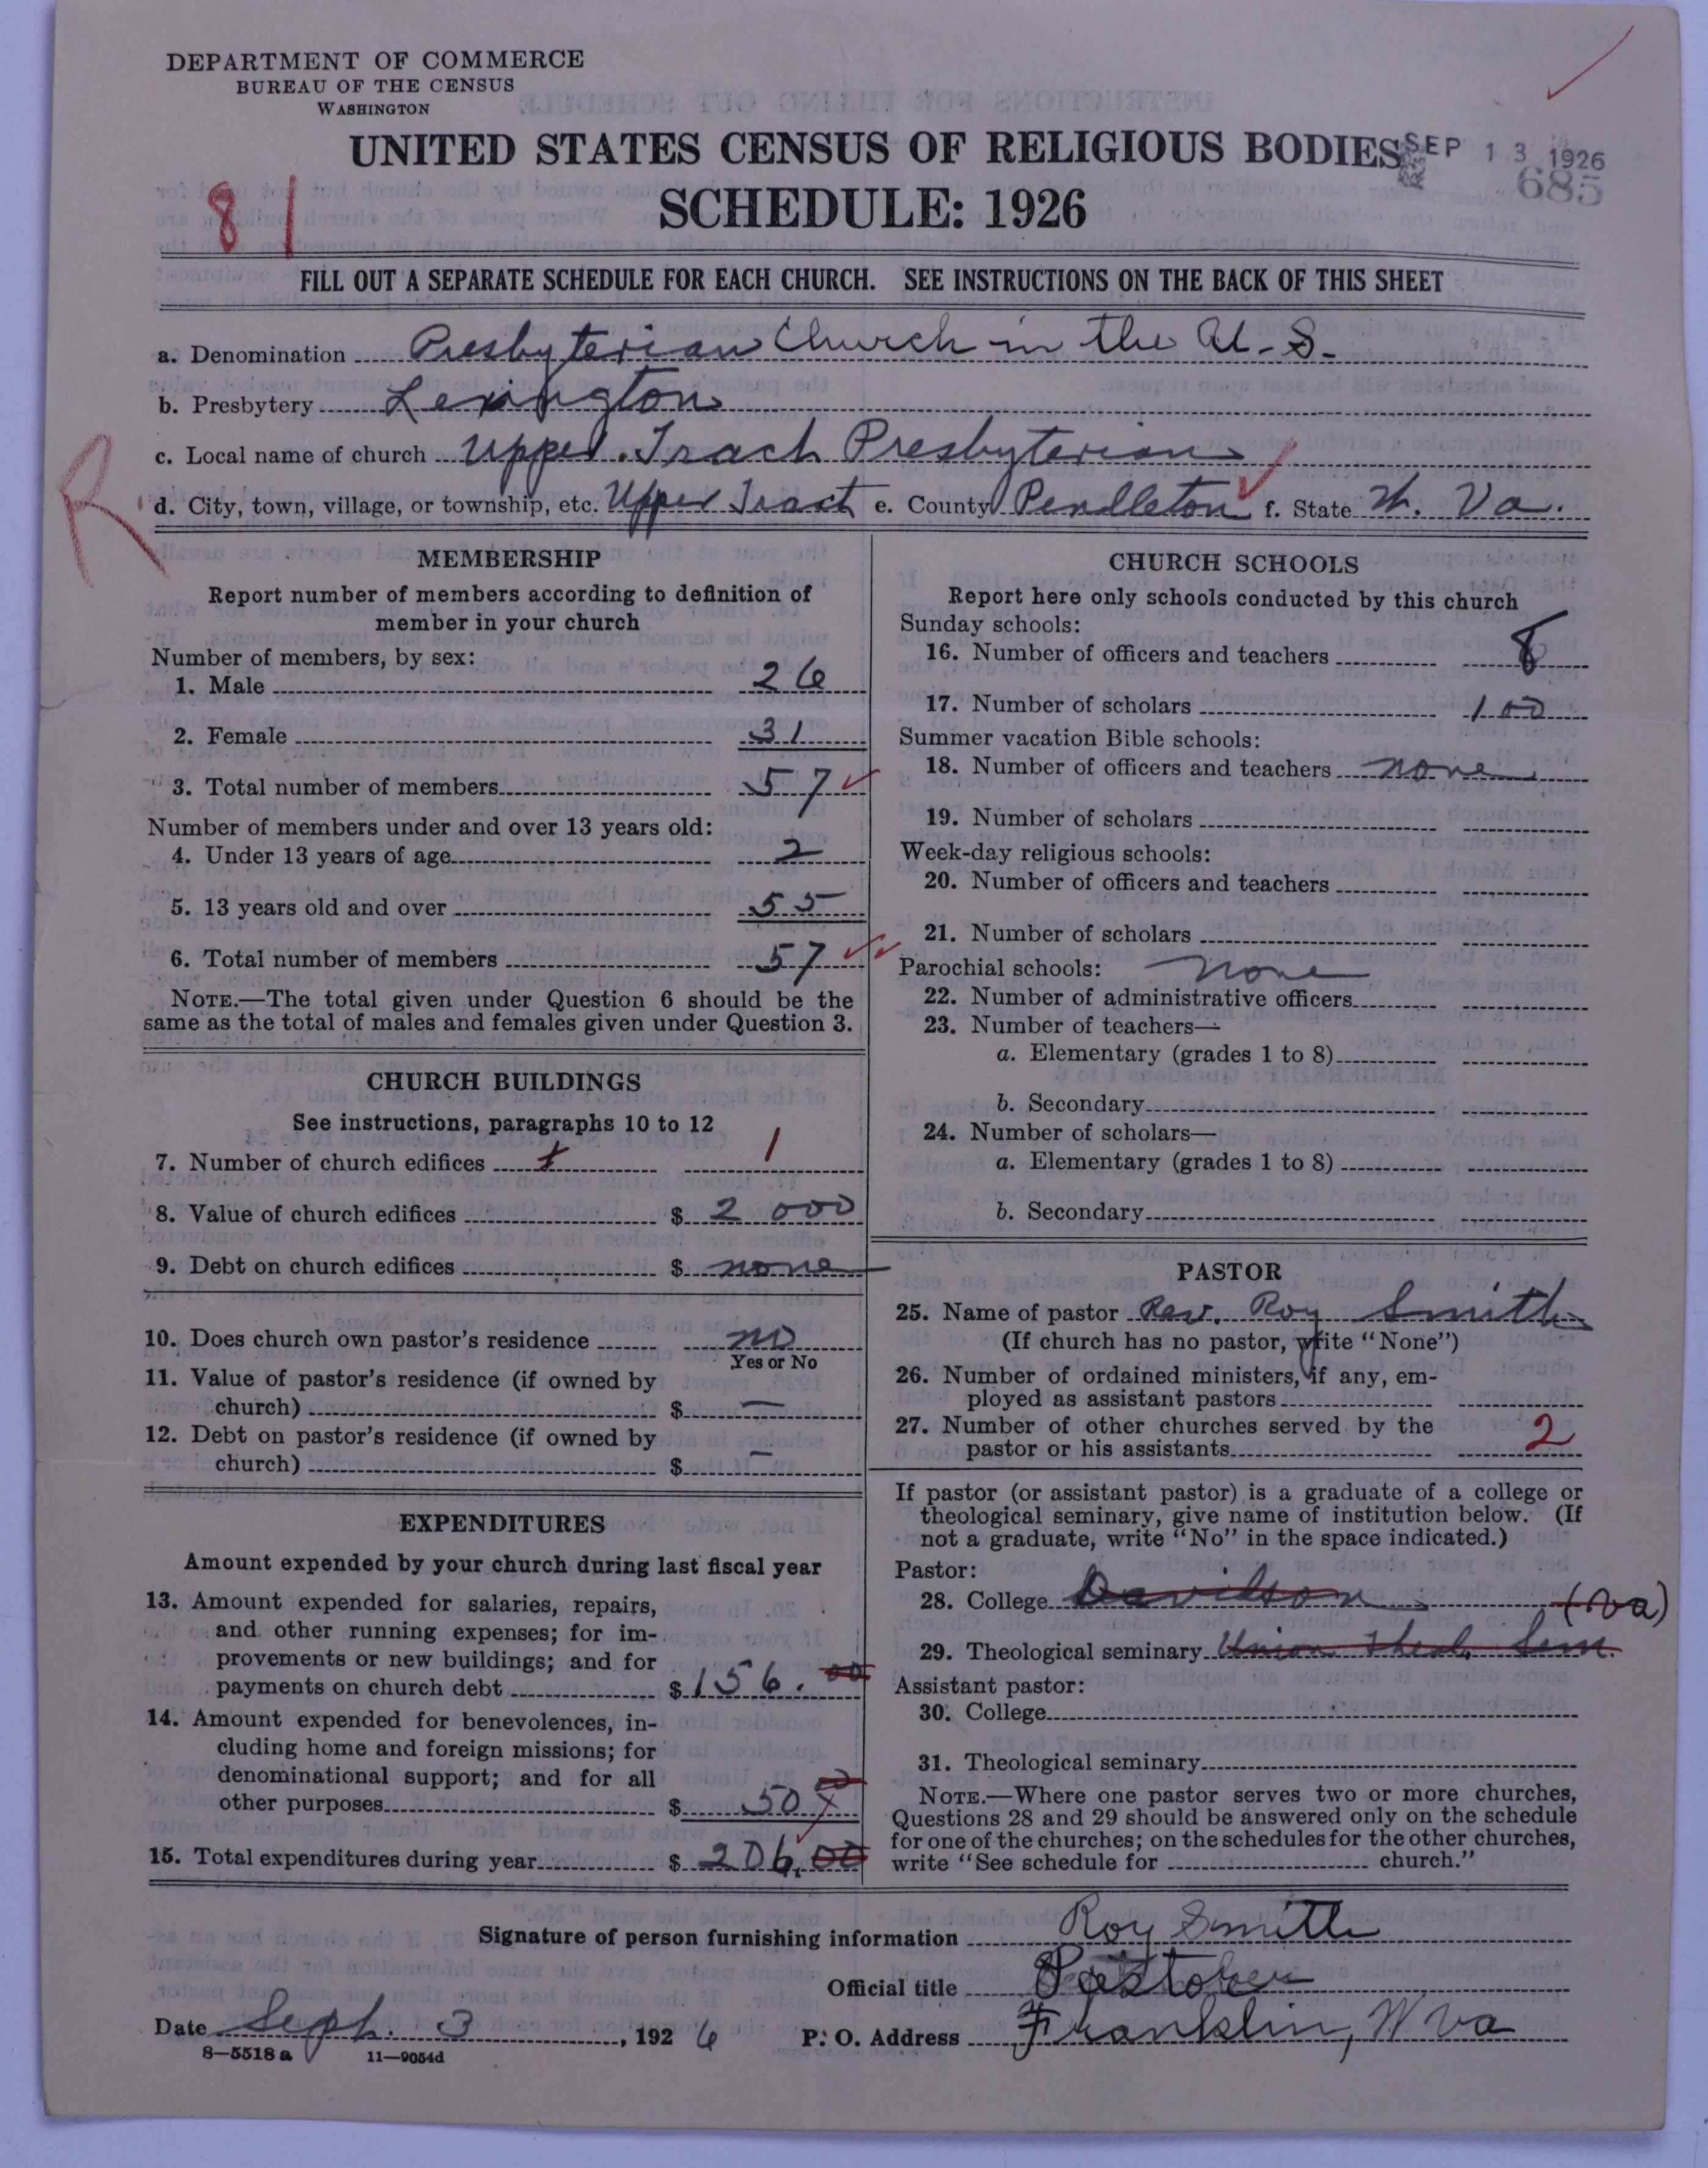 DEPARTMENT OF COMMERCE
BUREAU OF THE CENSUS
WASHINGTON
UNITED STATES CENSUS OF RELIGIOUS BODIES
SEP 13 1926
685
SCHEDULE: 1926
81
FILL OUT A SEPARATE SCHEDULE FOR EACH CHURCH. SEE INSTRUCTIONS ON THE BACK OF THIS SHEET
a. Denomination Presbyterian Church in the U.S.
b. Presbytery Lexington
c. Local name of church Upper Tract Presbyterian
R
d. City, town, village, or township, etc. Upper Tract e. County Pendleton f. State W. Va.
MEMBERSHIP
Report number of members according to definition of
member in your church
Number of members, by sex:
1. Male 26
2. Female 31
3. Total number of members 57
Number of members under and over 13 years old:
4. Under 13 years of age 2
5. 13 years old and over 55
6. Total number of members 57
NOTE.—The total given under Question 6 should be the
same as the total of males and females given under Question 3.
CHURCH BUILDINGS
See instructions, paragraphs 10 to 12
7. Number of church edifices 1 1
8. Value of church edifices $ 2000
9. Debt on church edifices $ none
10. Does church own pastor's residence no
Yes or No
11. Value of pastor's residence (if owned by
church) $ —
12. Debt on pastor's residence (if owned by
church) $ —
EXPENDITURES
Amount expended by your church during last fiscal year
13. Amount expended for salaries, repairs,
and other running expenses; for im-
provements or new buildings; and for
payments on church debt $ 156.00
14. Amount expended for benevolences, in-
cluding home and foreign missions; for
denominational support; and for all
other purposes $ 50
15. Total expenditures during year $ 206.00
CHURCH SCHOOLS
Report here only schools conducted by this church
Sunday schools:
16. Number of officers and teachers 8
17. Number of scholars 100
Summer vacation Bible schools:
18. Number of officers and teachers none
19. Number of scholars
Week-day religious schools:
20. Number of officers and teachers
21. Number of scholars
Parochial schools: none
22. Number of administrative officers
23. Number of teachers—
a. Elementary (grades 1 to 8)
b. Secondary
24. Number of scholars—
a. Elementary (grades 1 to 8)
b. Secondary
PASTOR
25. Name of pastor Rev. Roy Smith
(If church has no pastor, write "None")
26. Number of ordained ministers, if any, em-
ployed as assistant pastors
27. Number of other churches served by the
pastor or his assistants 2
If pastor (or assistant pastor) is a graduate of a college or
theological seminary, give name of institution below. (If
not a graduate, write "No" in the space indicated.)
Pastor:
28. College Davidson (Va)
29. Theological seminary Union Theol. Sem.
Assistant pastor:
30. College
31. Theological seminary
NOTE.—Where one pastor serves two or more churches,
Questions 28 and 29 should be answered only on the schedule
for one of the churches; on the schedules for the other churches,
write "See schedule for church."
Signature of person furnishing information Roy Smith
Official title Pastor
Date Sept. 3, 1926 P. O. Address Franklin, W Va
8—5518a 11—9054d